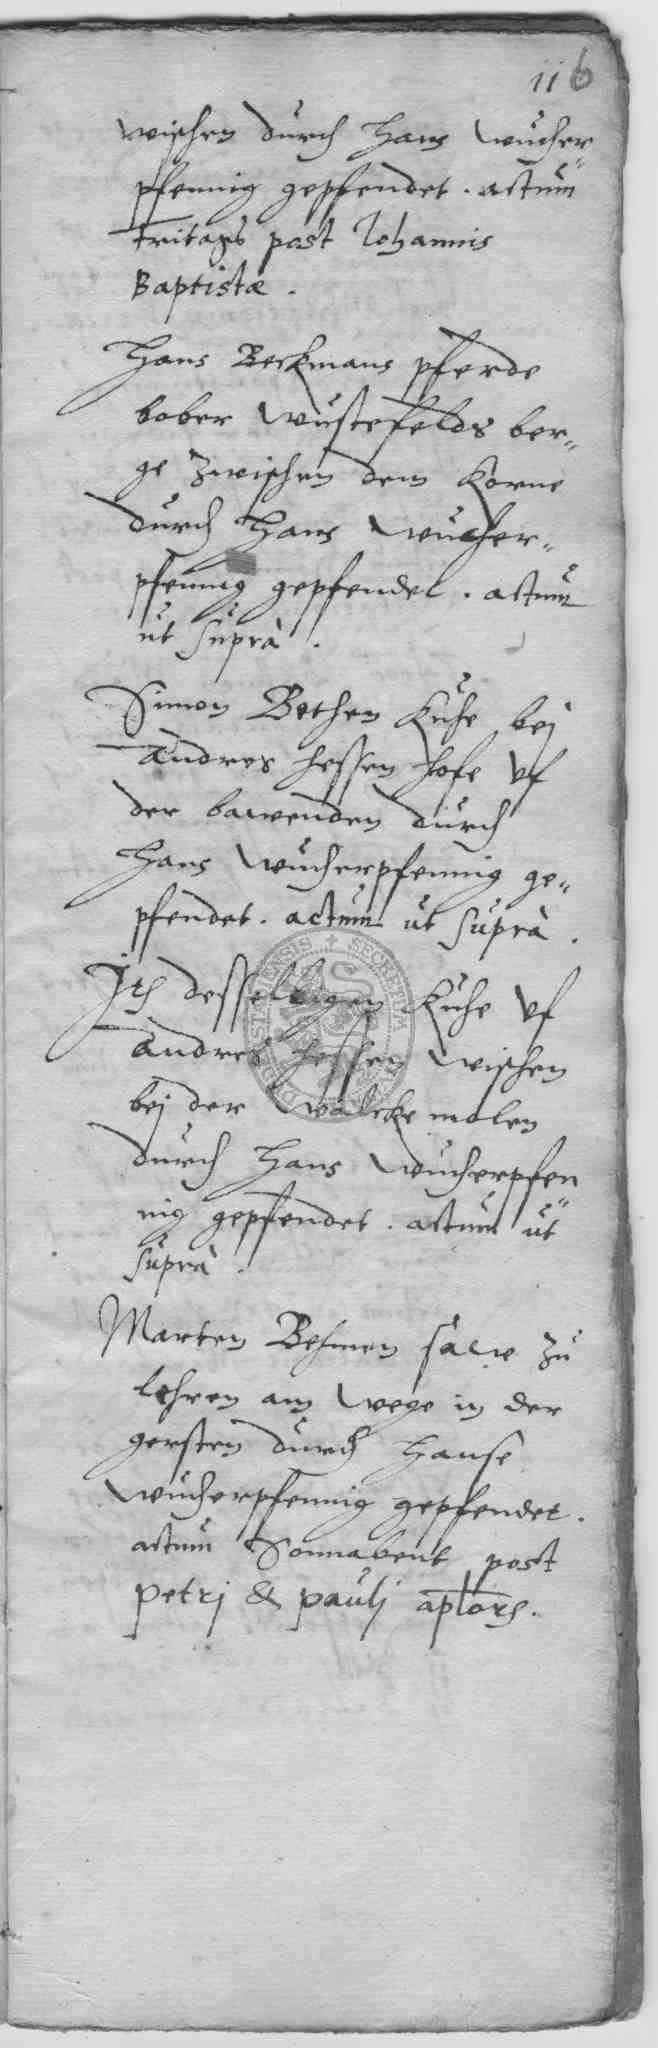 116
wischen durch Hans Wucher-
pfennig gepfendet. actum
fritags post Johannis
Baptistæ.
Hans Beckmans pferde
bober Wustefelds ber-
ge zwischen dem Korne
durch Hans Wucher-
pfennig gepfendet. actum
ut suprà.
Simon Bethen Kuhe bej
Andres Hessen Hofe uf
der bawenden durch
Hans Wucherpfennig ge-
pfendet. actum ut suprà.
Itē desselbigen Kuhe uf
Andres Hessen wischen
bej der Walcke molen
durch Hans Wucherpfen
nig gepfendet. actum ut
suprà.
Marten Behmen sawe zu
lehren am wege in der
gersten durch Hanse
Wucherpfennig gepfendet.
actum Sonnabent post
Petri & Pauli aplorū.
DUDERSTADENSIS SECRETUM